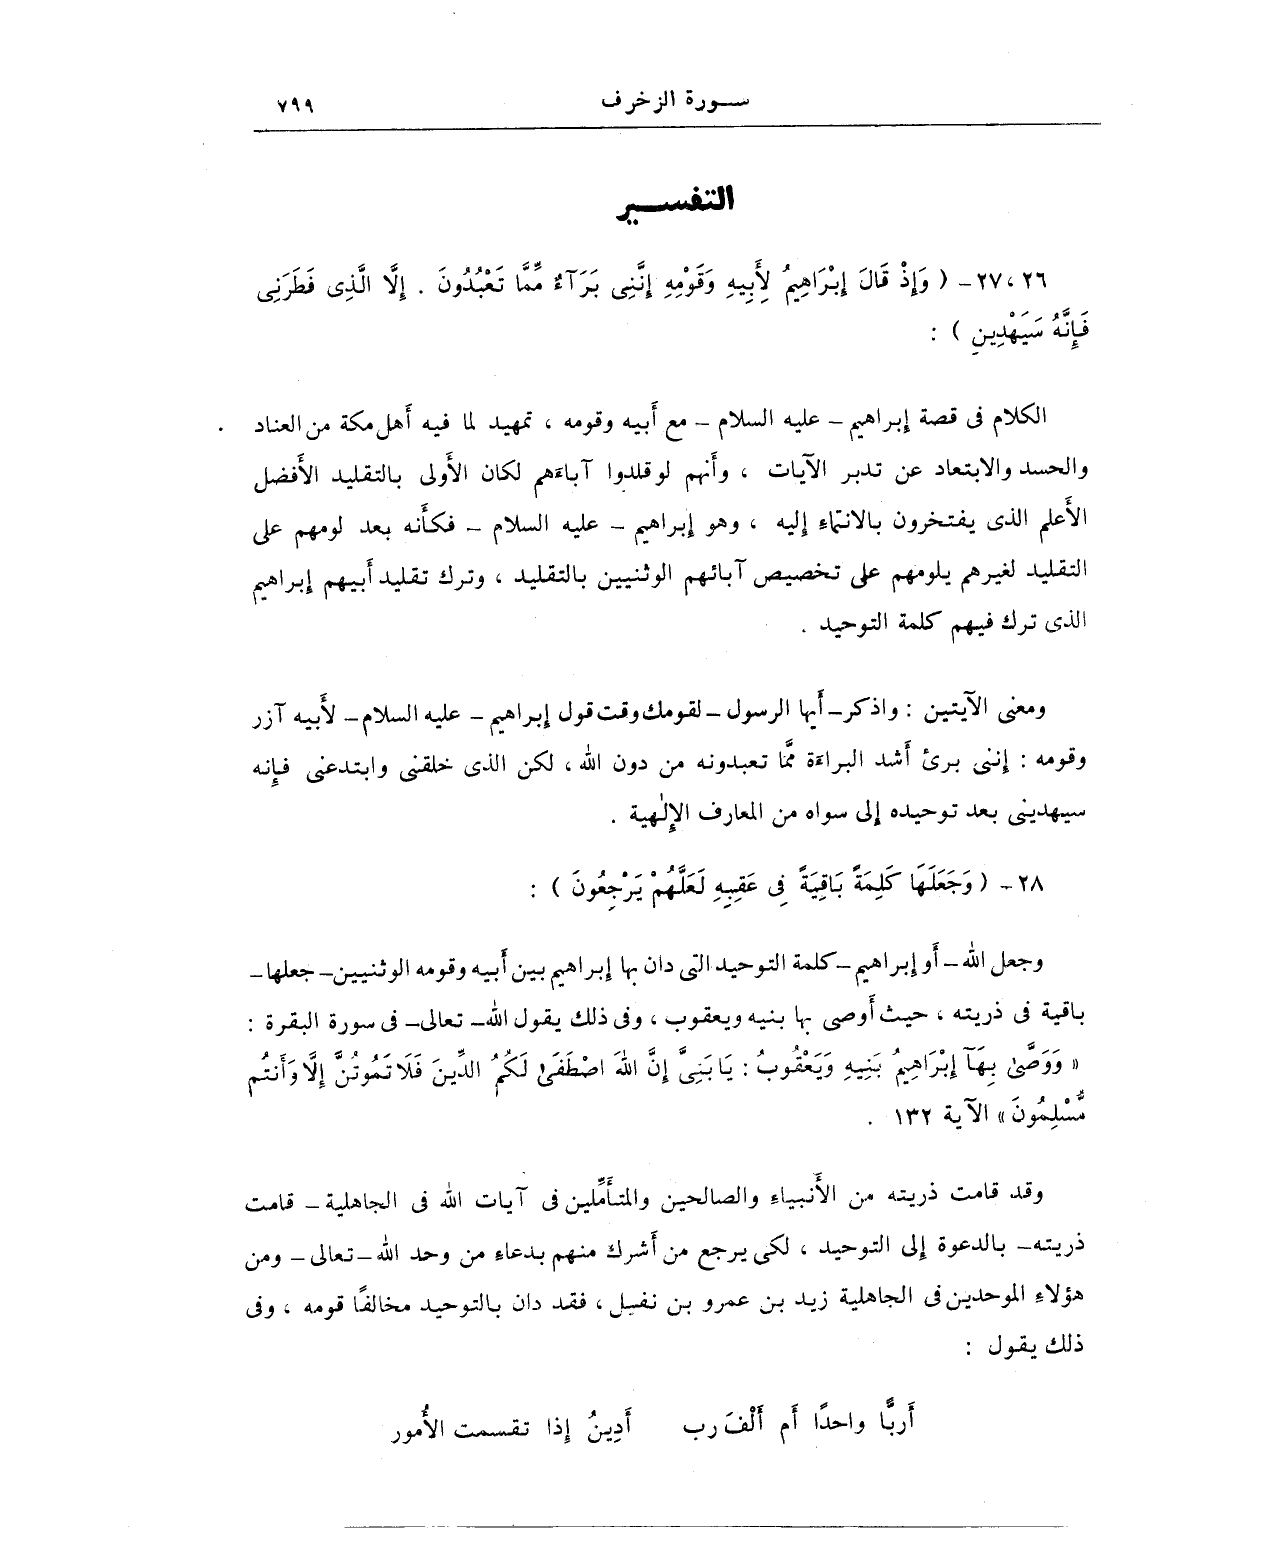 سـورة الزخرف ٧٩٩
التفسـير
٢٦ ، ٢٧ - ( وَإِذْ قَالَ إِبْرَاهِيمُ لِأَبِيهِ وَقَوْمِهِ إِنَّنِى بَرَآءٌ مِّمَّا تَعْبُدُونَ . إِلَّا الَّذِى فَطَرَنِى
فَإِنَّهُ سَيَهْدِينِ ) :
الكلام فى قصة إبراهيم - عليه السلام - مع أَبيه وقومه ، تمهيد لما فيه أَهل مكة من العناد
والحسد والابتعاد عن تدبر الآيات ، وأَنهم لو قلدوا آباءَهم لكان الأَولى بالتقليد الأَفضل
الأَعلم الذى يفتخرون بالانتماءِ إليه ، وهو إبراهيم - عليه السلام - فكأَنه بعد لومهم على
التقليد لغيرهم يلومهم على تخصيص آبائهم الوثنيين بالتقليد ، وترك تقليد أَبيهم إبراهيم
الذى ترك فيهم كلمة التوحيد .
ومعنى الآيتين : واذكر - أَيها الرسول - لقومك وقت قول إبراهيم - عليه السلام - لأَبيه آزر
وقومه : إننى برئ أَشد البراءَة مَّما تعبدونه من دون الله ، لكن الذى خلقنى وابتدعنى فإنه
سيهدينى بعد توحيده إلى سواه من المعارف الإلٰهية .
٢٨ - ( وَجَعَلَهَا كَلِمَةً بَاقِيَةً فِى عَقِبِهِ لَعَلَّهُمْ يَرْجِعُونَ ) :
وجعل الله - أَو إبراهيم - كلمة التوحيد التى دان بها إبراهيم بين أَبيه وقومه الوثنيين - جعلها -
باقية فى ذريته ، حيث أَوصى بها بنيه ويعقوب ، وفى ذلك يقول الله - تعالى - فى سورة البقرة :
« وَوَصَّىٰ بِهَآ إِبْرَاهِيمُ بَنِيهِ وَيَعْقُوبُ : يَا بَنِىَّ إِنَّ اللهَ اصْطَفَىٰ لَكُمُ الدِّينَ فَلَا تَمُوتُنَّ إِلَّا وَأَنتُم
مُّسْلِمُونَ » الآية ١٣٢ .
وقد قامت ذريته من الأَنبياءِ والصالحين والمتأَمِّلين فى آيات الله فى الجاهلية - قامت
ذريته - بالدعوة إلى التوحيد ، لكى يرجع من أَشرك منهم بدعاءِ من وحد الله - تعالى - ومن
هؤلاءِ الموحدين فى الجاهلية زيد بن عمرو بن نفيل ، فقد دان بالتوحيد مخالفًا قومه ، وفى
ذلك يقول :
أَربًّا واحدًا أَم أَلْفَ رب أَدِينُ إِذا تقسمت الأُمور